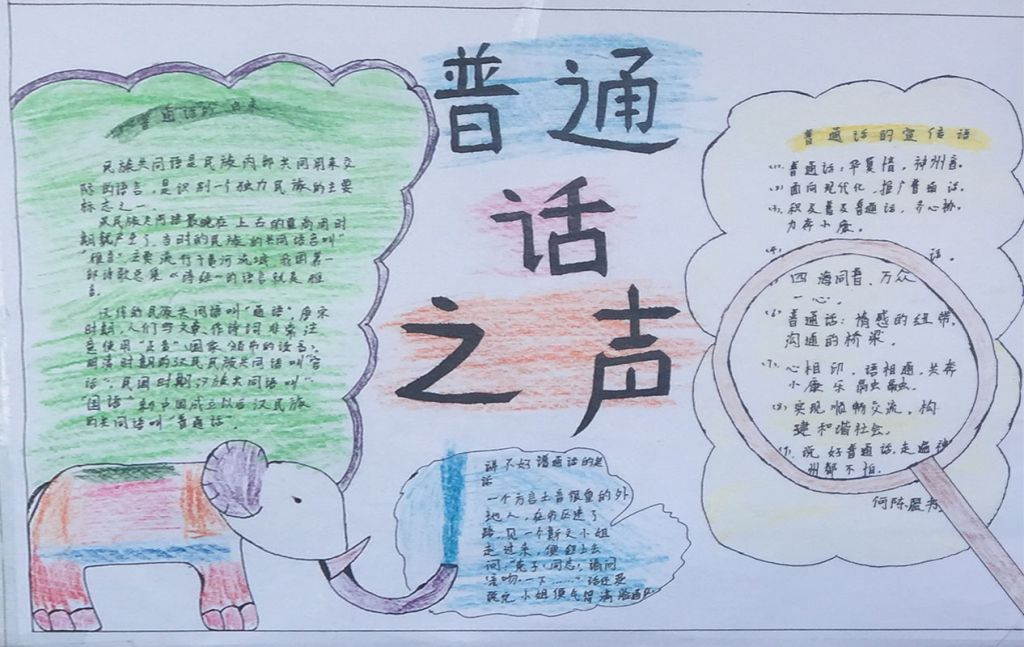 普通话的由来
民族共同语是民族内部共同用来交
际的语言，是识别一个独力民族的主要
标志之一。
汉民族共同语最晚在上古的夏商周时
期就产生了，当时的民族的共同语名叫"
"雅言"主要流行于黄河流域，我国第一
部诗歌总集《诗经》的语言就是雅
言。
汉民族共同语叫"通语"。唐宋
时期，人们写文章、作诗词非常注
意使用"正音"（国家颁布的读音）
明清时期的汉民民族共同语叫"官
话"，民国时期汉族共同语叫"
"国语"新中国成立以后汉民族
的共同语叫普通话。
普通
话
之声
讲不好谱通话的笑
话
一个方言土音很重的外
地人，在市区迷了
路，见一个斯文小姐
走过来，便赶上去
问："同志，请问
一下……"话还没
说完小姐便气得满脸通
普通话的宣传话
(1). 普通话，华夏情，神州音。
(2) 面向现代化，推广普通话。
(3). 积及普及普通话，齐心协
力奔小康。
话。
四海同音，万众
一心。
(6) 普通话：情感的纽带，
沟通的桥梁。
(7). 心相印，语相通，共奔
小康乐融融。
(8) 实现顺畅交流，构
建和谐社会。
说好普通话，走遍神
州都不怕。